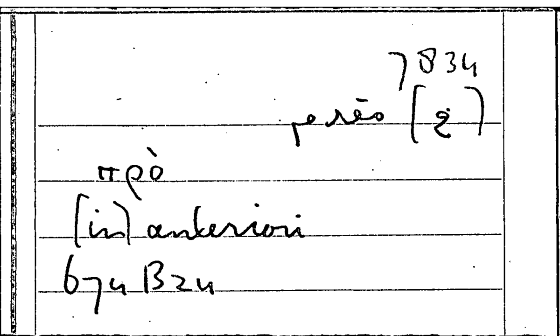 7834
πρὸ
[in] anteriori
674 B24